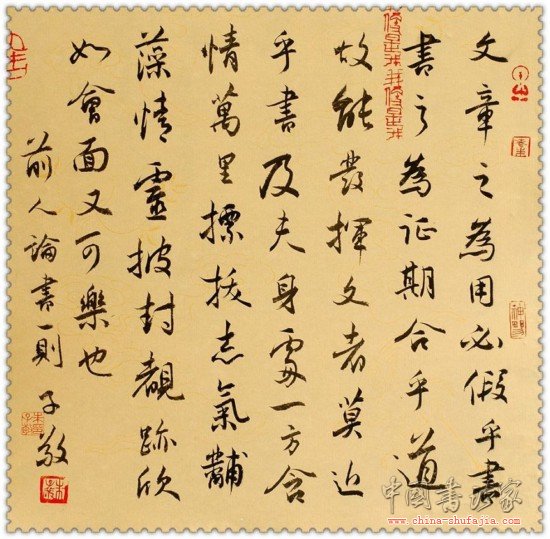 文章之為用必假乎書
書之為证期合乎道
故能發揮文者莫近
乎書及夫身處一方含
情萬里摽拔志氣黼
藻情靈披封覩跡欣
如會面又可樂也
前人論書一則 子敬
中国书法家
www.china-shufajia.com